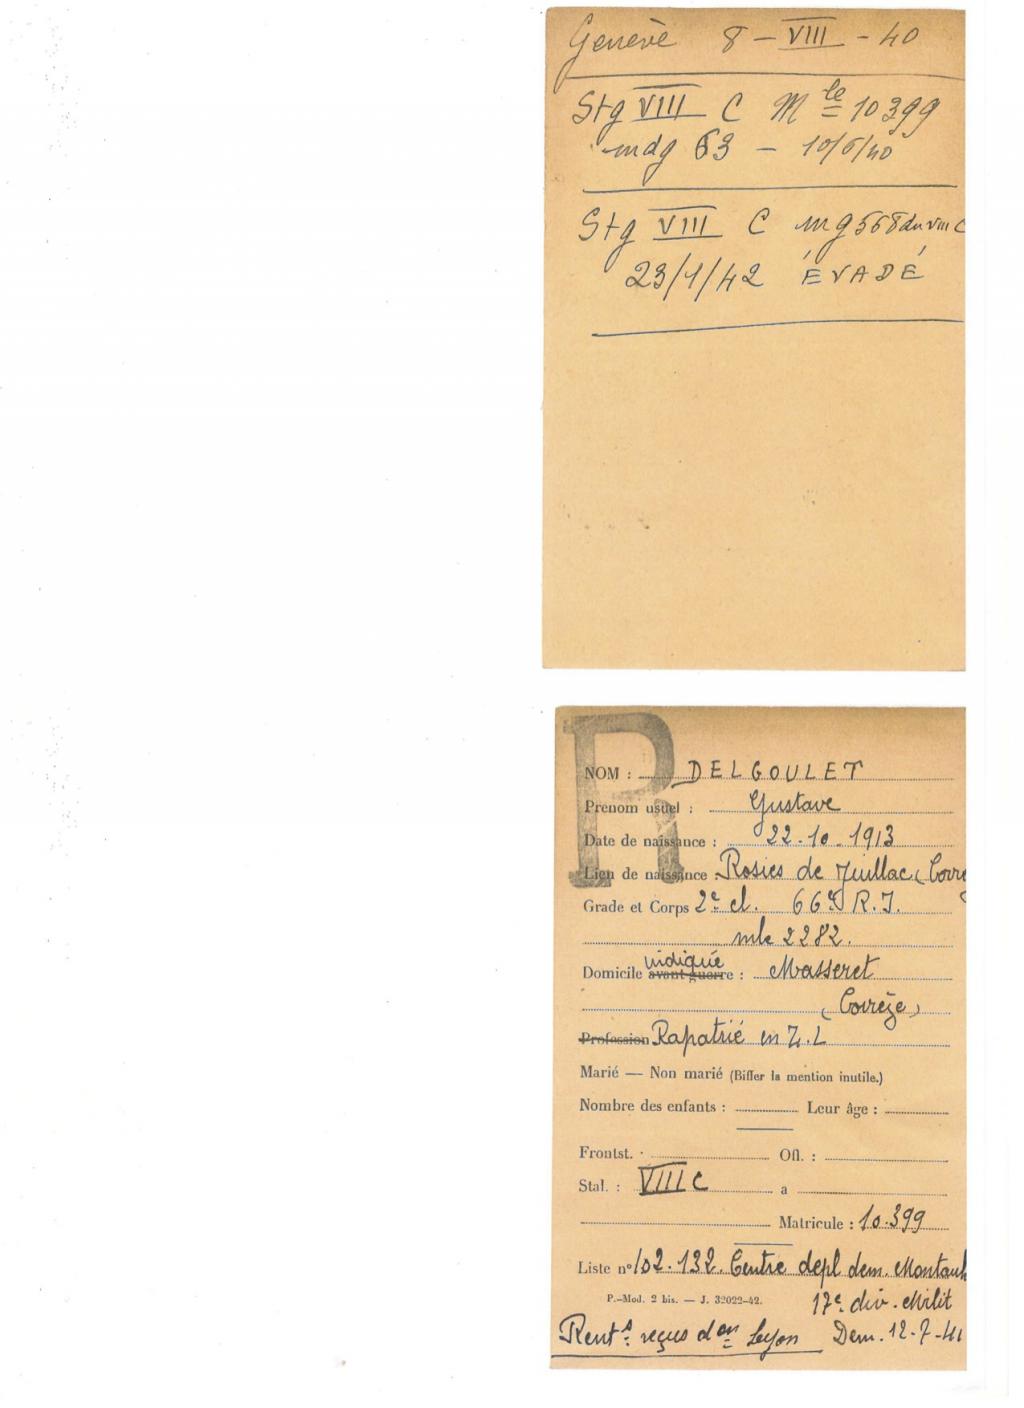 Genève 8 - VIII - 40
Stg VIII C Mle 10399
mdg 63 - 10/6/40
Stg VIII C mg 568 du VIII C
23/1/42 ÉVADÉ
R
NOM : DELGOULET
Prénom usuel : Gustave
Date de naissance : 22-10-1913
Lieu de naissance : Rosies de Juillac (Corrè
Grade et Corps 2e cl. 66e R.I.
mle 2282.
Domicile avant-guerre indiqué : Masseret
(Corrèze)
Profession Rapatrié en Z.L
Marié — Non marié (Biffer la mention inutile.)
Nombre des enfants : Leur âge :
Frontst. Ofl. :
Stal. : VIII C a
Matricule : 10.399
Liste n° 102.132. Centre depl dem. Montaub
P.-Mod. 2 bis. — J. 32022-42. 17e div. Milit
Rents reçus don Lyon Dem. 12-7-41